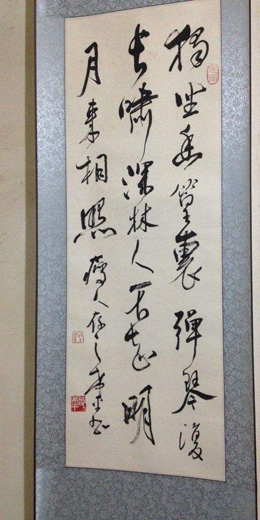 獨坐幽篁裏彈琴復
長嘯深林人不知明
月來相照